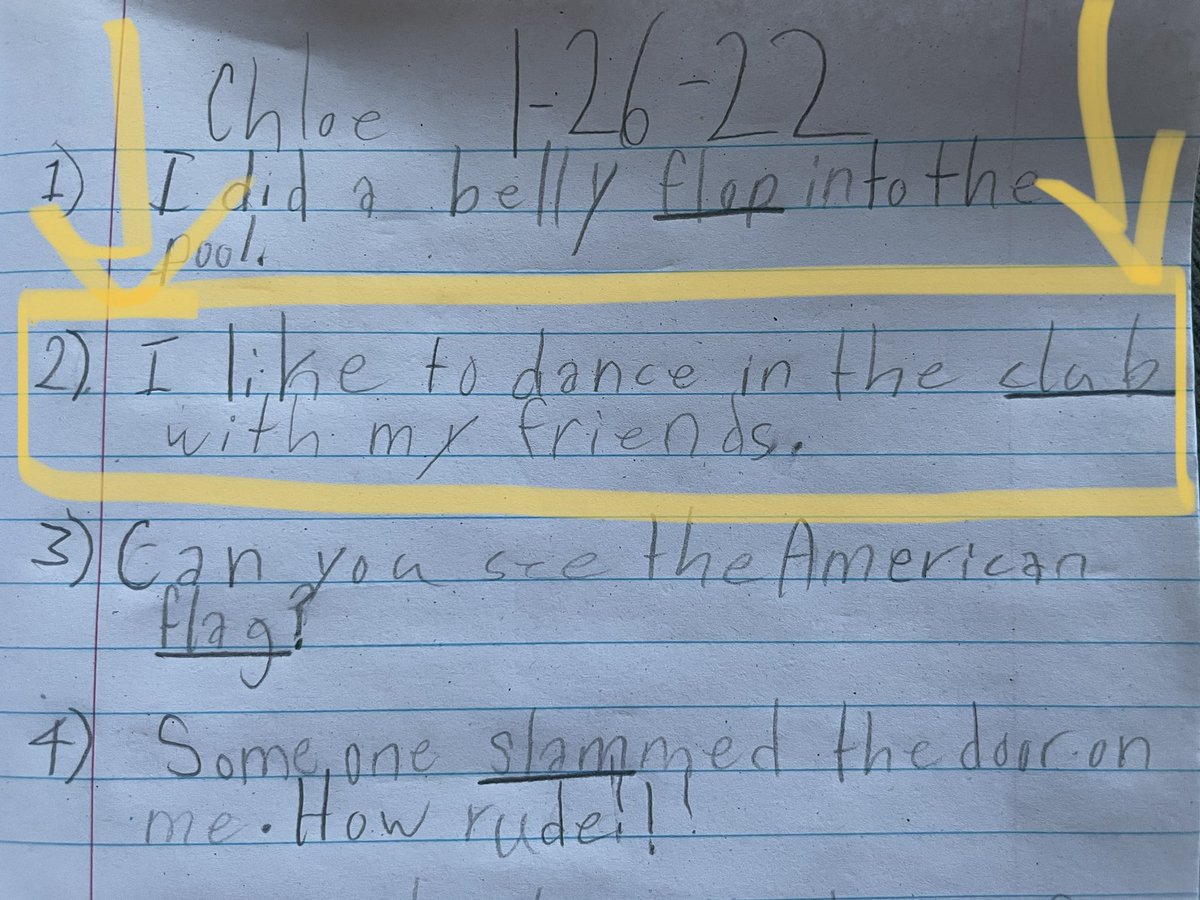 Chloe 1-26-22
1) I did a belly flop into the
pool.
2). I like to dance in the club
with my friends.
3) Can you see the American
flag?
4) Someone slammed the door on
me. How rude!!!